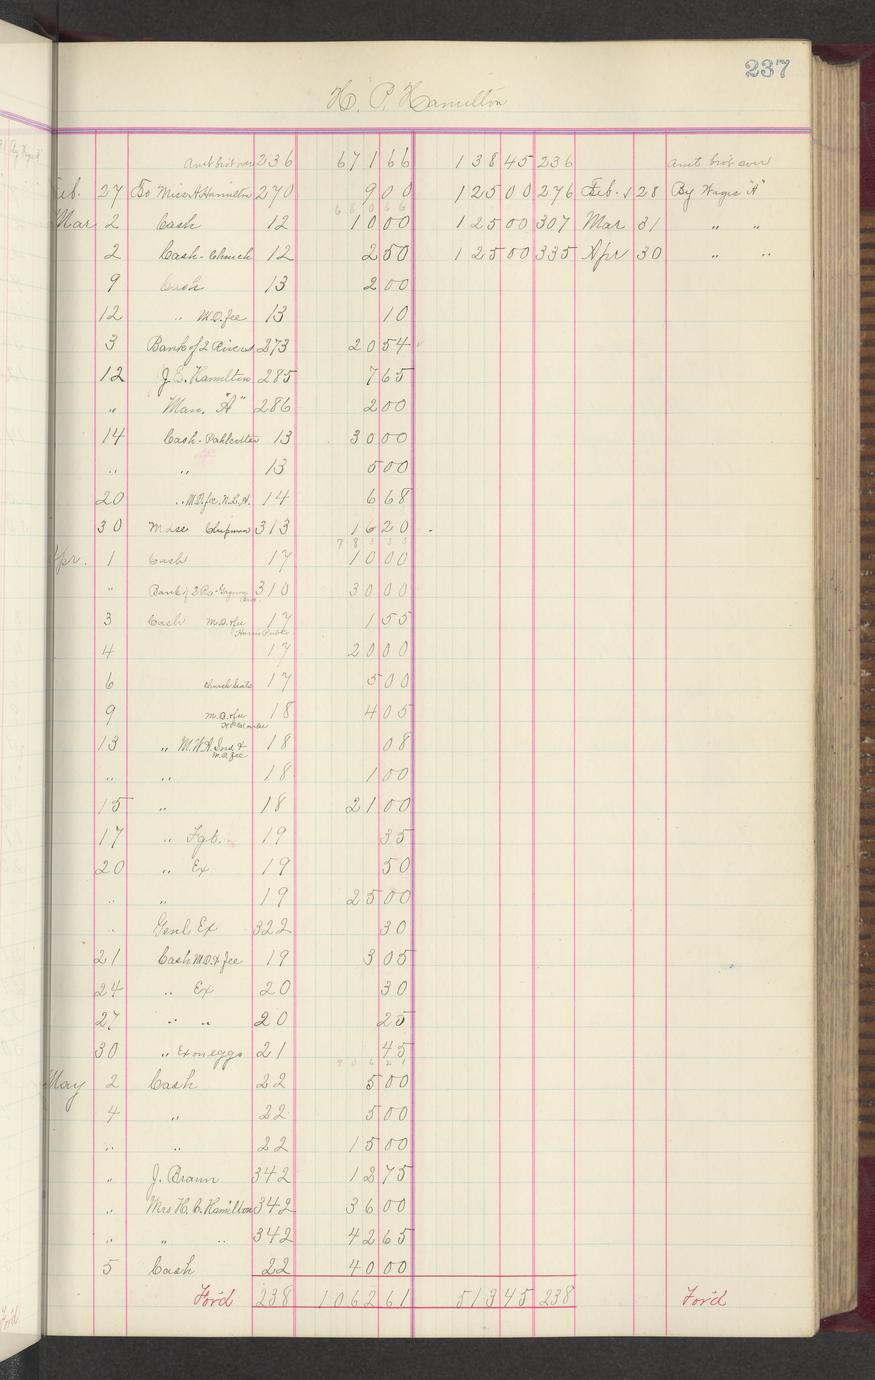 237
H. P. Hamilton
Amt brot over 236 671 66 138 45 236 Amt brot over
Feb. 27 To Miss H Hamilton 270 9 00 125 00 276 Feb. 28 By Wages "A"
680 66
Mar 2 Cash 12 10 00 125 00 307 Mar 31 " "
2 Cash - Church 12 2 50 125 00 335 Apr 30 " "
9 Cash 13 2 00
12 " M.O. fee 13 10
3 Bank of 2 Rivers 273 20 54
12 J. E. Hamilton 285 7 65
" Man. "A" 286 2 00
14 Cash - 13 30 00
" " 13 5 00
20 " M.O. fee. N.L.H. 14 6 68
30 Mdse Chipman 313 16 20
Apr. 1 Cash 17 10 00
" Bank of 2 R's 310 30 00
3 Cash M.O. & fee 17 1 55
4 17 20 00
6 Church 17 5 00
9 M.O. & fee 18 4 05
13 " M.W.A. & M.O. fee 18 08
" " 18 1 00
15 " 18 21 00
17 " Fgt. 19 35
20 " Ex 19 50
" " 19 25 00
" Genl Ex 322 30
21 Cash M.O. & fee 19 3 05
24 " Ex 20 30
27 " " 20 25
30 " Ex on eggs 21 45
May 2 Cash 22 5 00
4 " 22 5 00
" " 22 15 00
" J. Braun 342 12 75
" Mrs H. C. Hamilton 342 36 00
" " " 342 42 65
5 Cash 22 40 00
For'd 238 1062 61 513 45 238 For'd